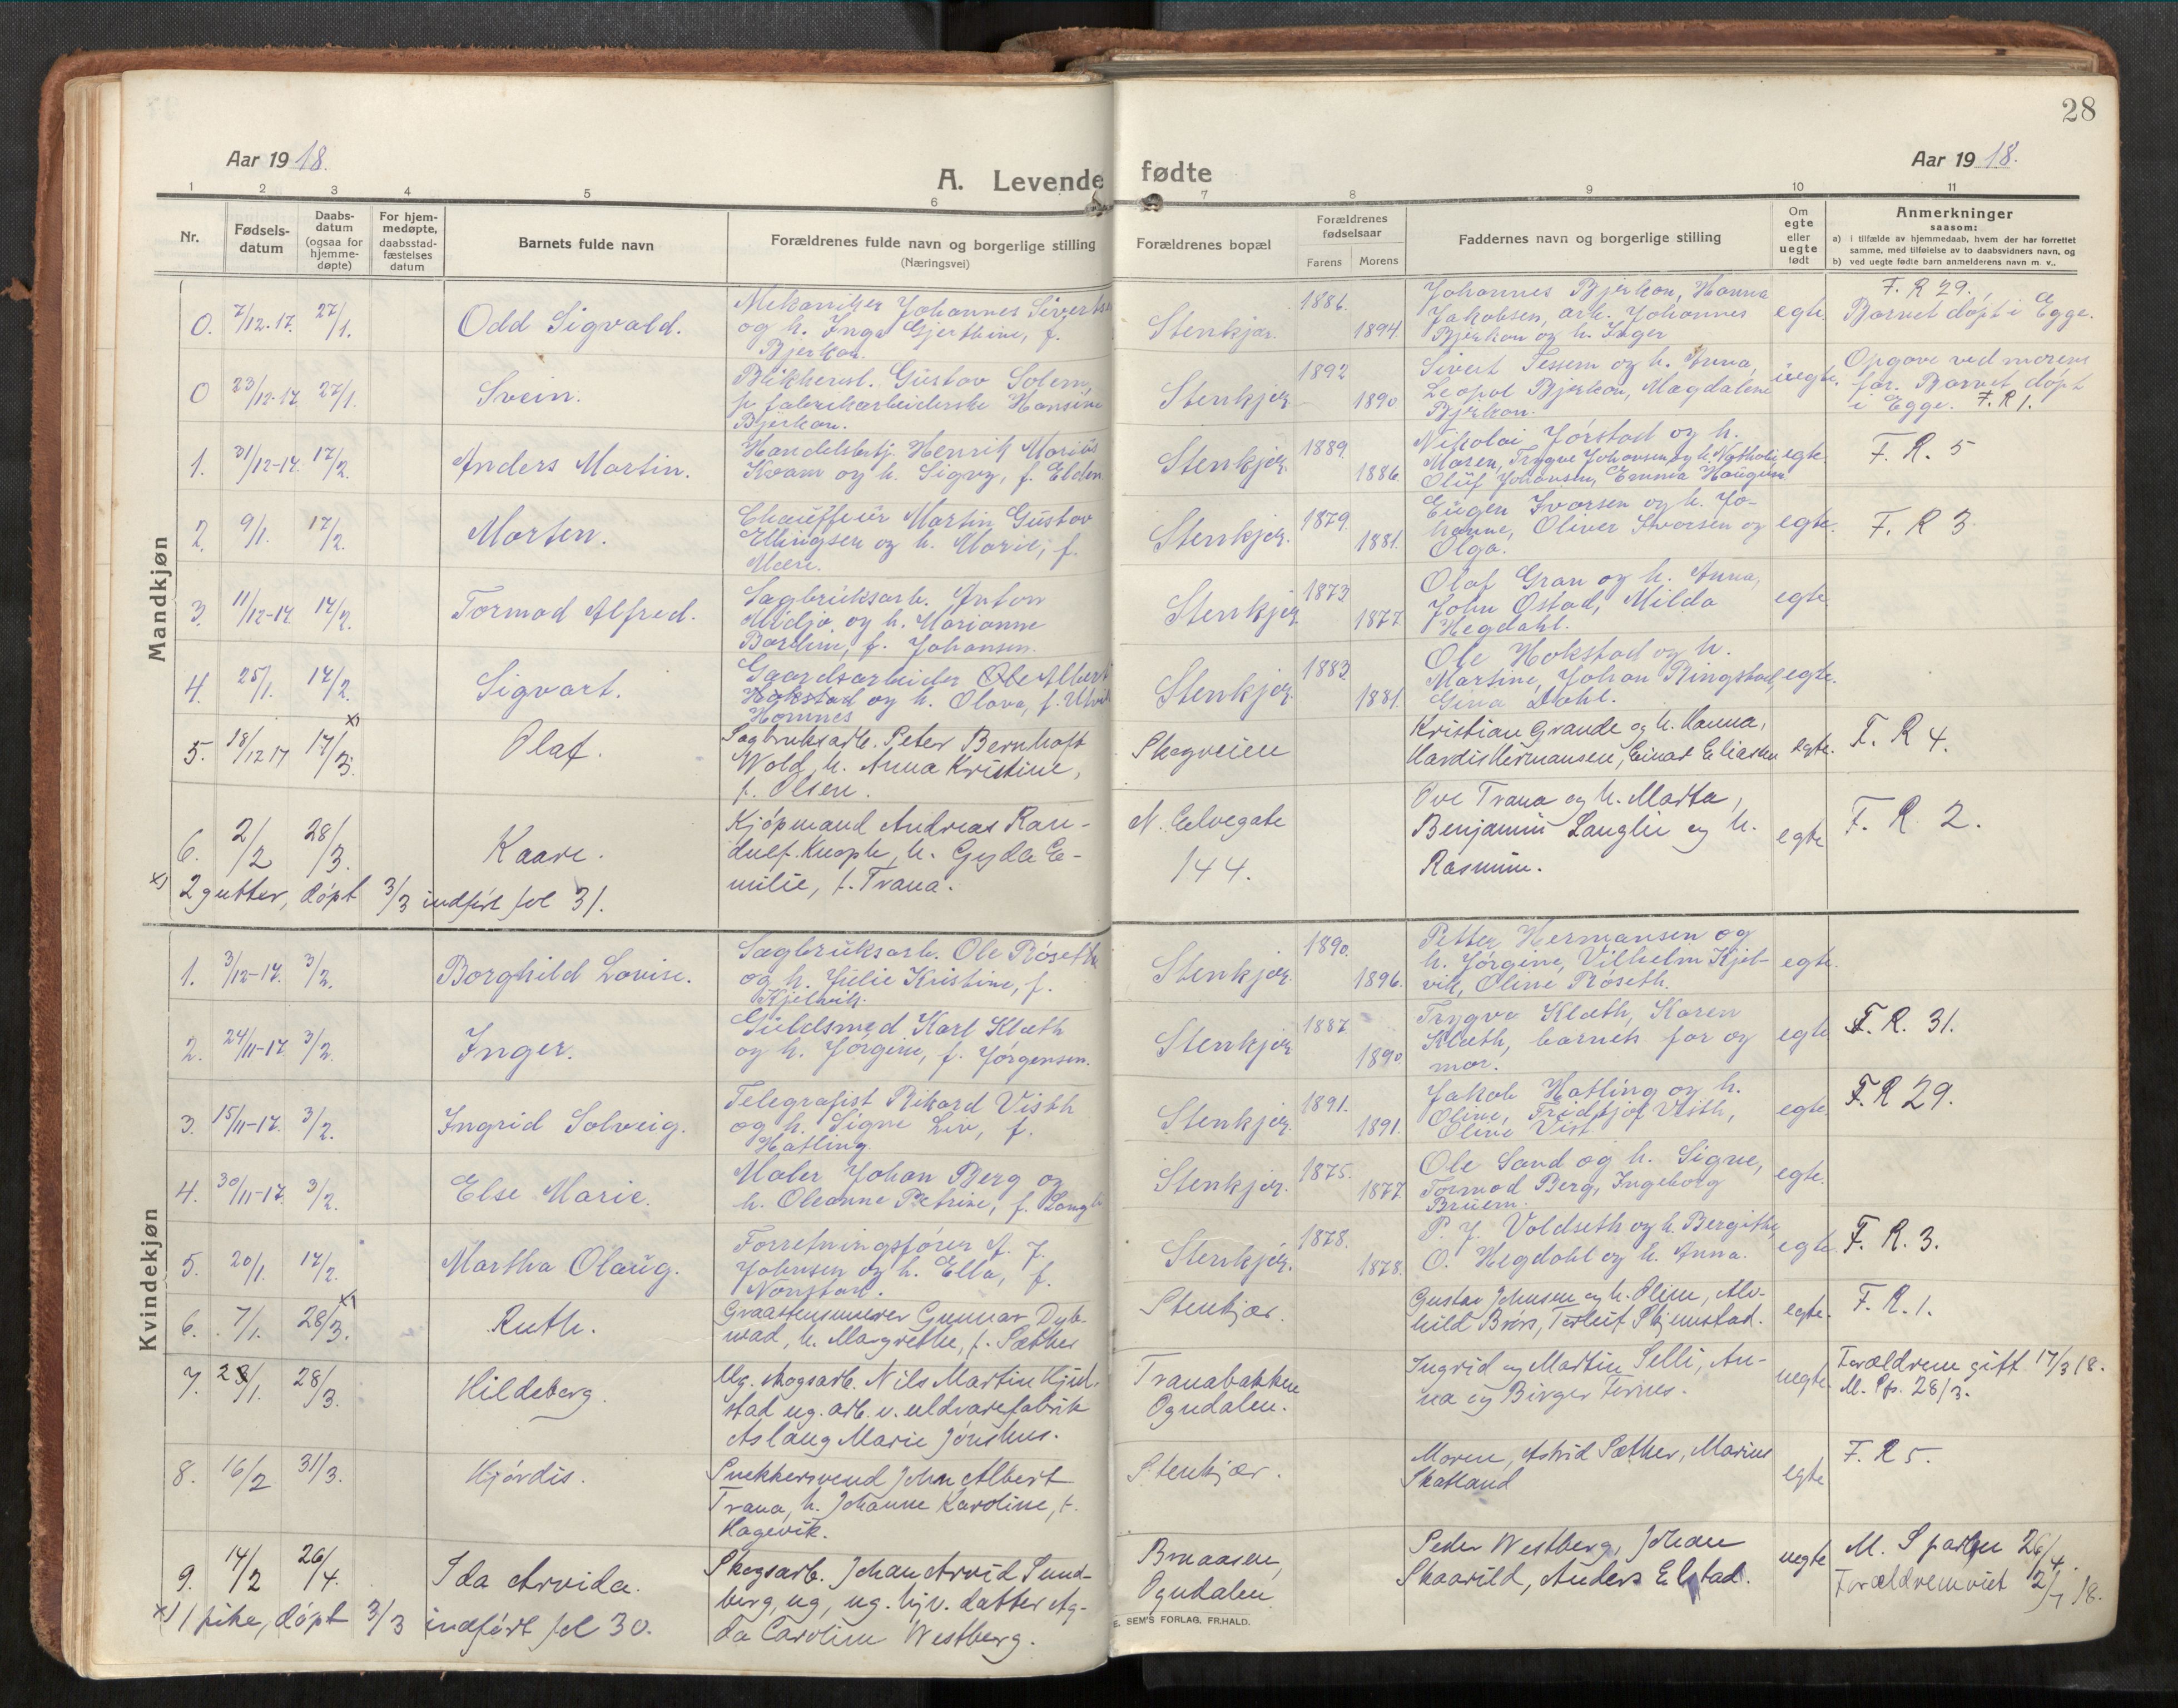 28
Aar 1918.
A. Levende fødte
Aar 1918.
1 2 3 4 5 6 7 8 9 10 11
Nr.
Fødsels-
datum
Daabs-
datum
(ogsaa for
hjemme-
døpte)
For hjem-
medøpte,
daabsstad-
fæstelses
datum
Barnets fulde navn
Forældrenes fulde navn og borgerlige stilling
(Næringsvei)
Forældrenes bopæl
Forældrenes
fødselsaar
Farens Morens
Faddernes navn og borgerlige stilling
Om
egte
eller
uegte
født
Anmerkninger
saasom:
a) i tilfælde av hjemmedaab, hvem der har forrettet
samme, med tilføielse av to daabsvidners navn, og
b) ved uegte fødte barn anmelderens navn m. v..
Mandkjøn
0. 7/12-17. 27/1. Odd Sigvald.
Mekaniker Johannes Sivertsen
og h. Inga Gjerthine, f.
Bjerkan.
Stenkjær. 1886. 1894.
Johannes Bjerkan, Hanna
Jakobsen, arb. Johannes
Bjerkan og h. Inger
egte.
F. R 29.
Barnet døpt i Egge.
0 23/12-17 27/1. Svein.
Blikkensl. Gustav Solem,
fabrikarbeiderske Hansine
Bjerkan.
Stenkjær 1892 1890
Sivert Tessem og h. Anna,
Leopol Bjerkan, Magdalene
Bjerkan.
uegte.
Opgave ved morens
far. Barnet døpt
i Egge. F. R 1.
1. 31/12-17 17/2 Anders Martin.
Handelsbetj. Henrik Marius
Kvam og h. Sigvy, f. Elden
Stenkjær 1889. 1886.
Nikolai Jørstad og h.
Maren, Trygve Johansen og h. Nathalie
Oluf Johansen, Emma Haugum
egte.
F. R. 5
2. 9/1. 17/2. Morten.
Chauffeur Martin Gustav
Ellingsen og h. Marie, f.
Mære.
Stenkjær. 1879. 1881.
Eugen Ivarsen og h. Jo-
hanne, Oliver Ivarsen og
Olga.
egte.
F. R 3
3. 11/12-17 17/2. Tormod Alfred.
Sagbruksarb. Anton
Midjo og h. Marianne
Bardine, f. Johansen.
Stenkjær 1873 1877
Olaf Gran og h. Anna,
John Østad, Milda
Hegdahl.
egte
4. 25/1. 17/2. Sigvart.
Gaardsarbeider Ole Albert
Hokstad og h. Olava, f. Ulvik
Homnes
Stenkjær. 1883 1881.
Ole Hokstad og h.
Martine, Johan Ringstad,
Gina Dahl.
egte.
5. 18/12 17 17/3. x) Olaf.
Sagbruksarb. Peter Bernhoft
Wold, h. Anna Kristine,
f. Olsen.
Skogveien
Kristian Grande og h. Hanna,
Hardis Hermansen, Einar Eliassen
egte.
F. R 4.
6. 2/2 28/3. Kaare.
Kjøpmand Andreas Ran-
dulf Knoph, h. Gyda E-
milie, f. Trana.
N. Elvegate
144.
Ove Trana og h. Marta,
Benjamin Langlie og h.
Rasmine.
egte
F. R 2.
x) 2 gutter, døpt 3/3 indført fol 31.
Kvindekjøn
1. 3/12-17. 3/2. Borghild Lovise.
Sagbruksarb. Ole Røseth
og h. Julie Kristine, f.
Kjelvik.
Stenkjær. 1890. 1896.
Petter Hermansen og
h. Jørgine, Vilhelm Kjel-
vik, Oline Røseth.
egte.
2. 24/11-17 3/2. Inger.
Guldsmed Karl Klæth
og h. Jørgine, f. Jørgensen.
Stenkjær 1887 1890
Trygve Klæth, Karen
Klæth, barnets far og
mor.
egte
F. R. 31.
3. 15/11-17. 3/2. Ingrid Solveig.
Telegrafist Rikard Visth
og h. Signe Liv, f.
Hatling.
Stenkjær. 1891. 1891.
Jakob Hatling og h.
Oline, Fridtjof Visth,
Oline Vist.
egte.
F. R 29.
4. 30/11-17. 3/2. Else Marie.
Maler Johan Berg og
h. Oleanne Petrine, f. Langli
Stenkjær. 1875. 1877.
Ole Sand og h. Signe,
Tormod Berg, Ingeborg
Bruem.
egte.
5. 20/1. 17/2. Martha Olaug.
Forretningsfører A. J.
Johnsen og h. Ella, f.
Nonstad.
Stenkjær. 1878. 1878.
P. J. Voldseth og h. Bergithe
O. Hegdahl og h. Anna.
egte.
F. R. 3.
6. 7/1. 28/3. x) Ruth.
Graastensmurer Gunnar Dyb-
wad, h. Margrethe, f. Sæther
Stenkjær.
Gustav Johnsen og h. Oline, Alv-
hild Brørs, Torleif Skjemstad.
egte.
F. R. 1.
7. 23/1. 28/3. Hildeborg.
Ug. skogsarb. Nils Martin Hjul-
stad ug. arb. v. uldvarefabrik
Aslaug Marie Jønshus.
Tranabakken
Ogndalen.
Ingrid og Martin Selli, An-
na og Birger Fornes.
uegte.
Forældrene gift 17/3 18.
M. Pfs. 28/3.
8. 16/2 31/3. Hjørdis.
Snekkersvend John Albert
Trana, h. Johanne Karoline, f.
Hagevik.
Stenkjær.
Moren, Astrid Sæther, Marius
Skatland
egte
F. R 5.
9. 14/2 26/4. Ida Arvida.
Skogsarb. Johan Arvid Sund-
berg, ug, ug. hjv. datter Ag-
da Caroline Westberg.
Bruaasen,
Ogndalen
Peder Westberg, Johan
Skaarild, Anders Elstad.
uegte
M. Sparbu 26/4.
Forældrene viet 2/7 18.
x) 1 pike, døpt 3/3 indført fol 30.
E. SEM'S FORLAG, FR.HALD.